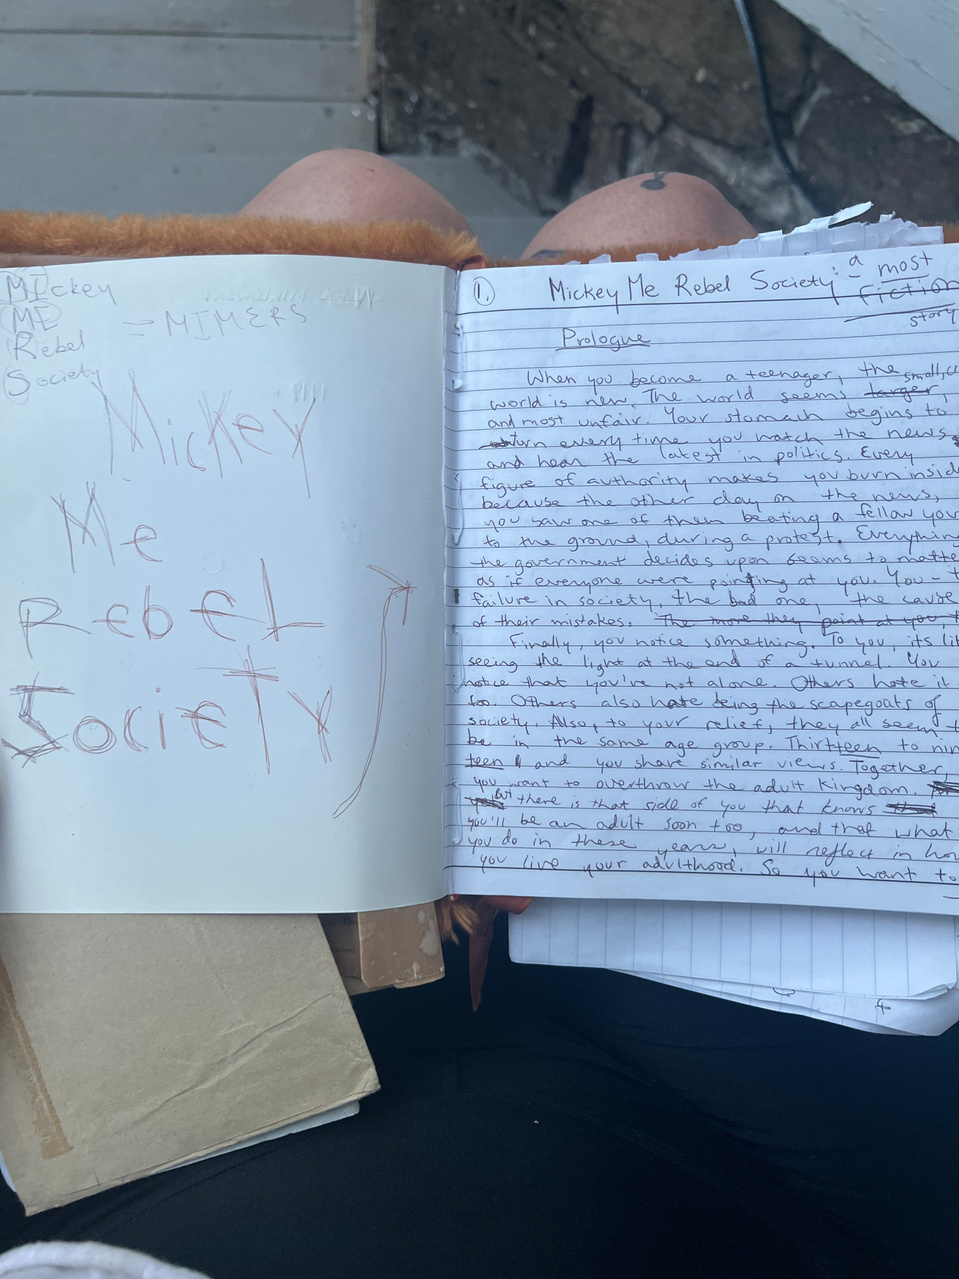 Mickey
ME
Rebel = MIMERS
Society
Mickey
Me
Rebel
Society
1. Mickey Me Rebel Society: a most
fiction
story
Prologue
When you become a teenager, the
world is new. The world seems larger, small,
and most unfair. Your stomach begins to
turn every time you watch the news
and hear the latest in politics. Every
figure of authority makes you burn inside
because the other day on the news,
you saw one of them beating a fellow
to the ground, during a protest. Everything
the government decides upon seems to
as if everyone were pointing at you. You - 
failure in society, the bad one, the cause
of their mistakes. The more they point at you,
Finally, you notice something. To you, its
seeing the light at the end of a tunnel. You
notice that you're not alone. Others hate it
too. Others also hate being the scapegoats of
society. Also, to your relief, they all seem
be in the same age group. Thirteen to
teen and you share similar views. Together,
you want to overthrow the adult kingdom.
But there is that side of you that knows
you'll be an adult soon too, and that what
you do in these years, will reflect in
you live your adulthood. So you want to